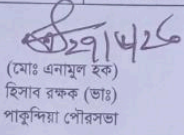 ২৭/৮/২৫
(মোঃ এনামুল হক)
হিসাব রক্ষক (ভাঃ)
পাকুন্দিয়া পৌরসভা